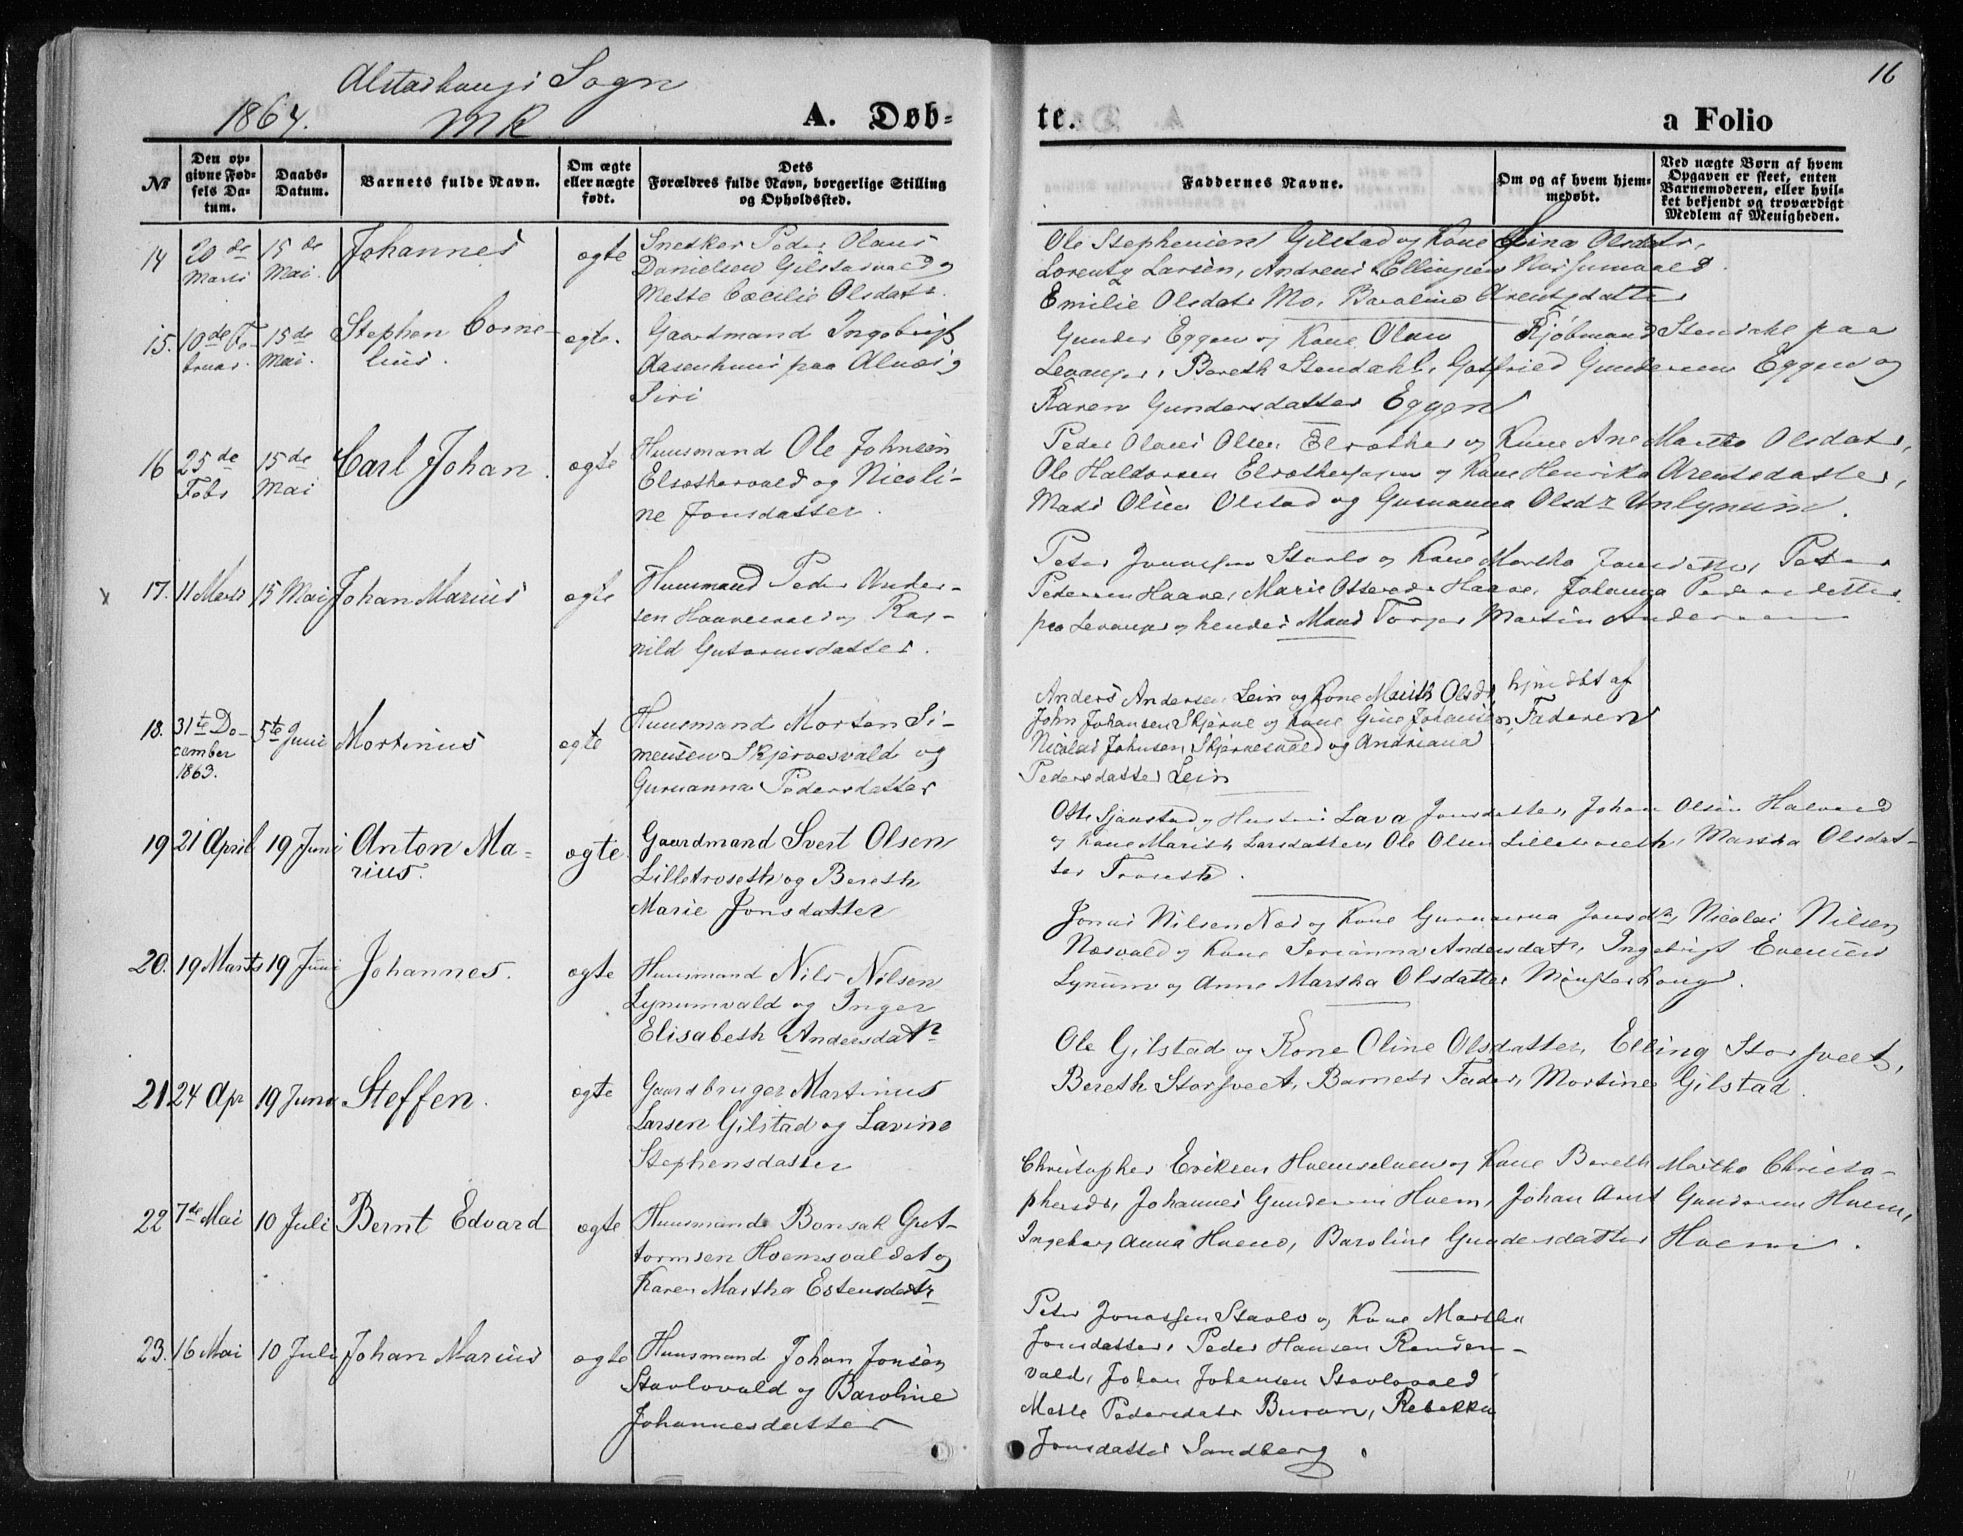 Alstadhaugs Sogn
16
1864. MK A. Døb- te. a Folio
№
Den op-
givne Fød-
sels Da-
tum.
Daabs-
Datum.
Barnets fulde Navn.
Om ægte
eller uægte
født.
Dets
Forældres fulde Navn, borgerlige Stilling
og Opholdssted.
Faddernes Navne.
Om og af hvem hjem-
medøbt.
Ved uægte Børn af hvem
Opgaven er skeet, enten
Barnemoderen, eller hvil-
ket bekjendt og troværdigt
Medlem af Menigheden.
14
20 de
Marts
15 de
Mai.
Johannes
ægte
Snedker Peder Olaus
Danielsen Gilstadvald og
Mette Cæcilie Olsdatr.
Ole Stephensen Gilstad og Kone Olsdatr,
Lorentz Larsen, Andreas Ellingsen
Emilie Olsdatr Mo, Baroline Arentsdatter
15.
10de Fe-
bruar.
15de
Mai.
Stephen Corne-
lius.
ægte.
Gaardmand Ingebrigt
Aasenhuus paa Alnæs og
Siri
Gunder Eggen og Kone Olava Kjøbmand Stendahl paa
Levanger, Bereth Stendahl, Gotfried Gundersen Eggen og
Karen Gundersdatter Eggen
16
25de
Febr
15de
Mai
Carl Johan.
ægte
Huusmand Ole Johnsen
Elvæthervald og Nicoli-
ne Jonsdatter.
Peder Olaus Olsen Elvæther og Kone Ane Martha Olsdatr,
Ole Haldorsen og Kone Henrika Arentsdatter,
Mads Olsen Olstad og Guruanna Olsdr
17.
11 Marts
15 Mai
Johan Marius
ægte
Huusmand Peder Ander-
sen Haavesvald og Rag-
nild Gutormsdatter.
Peter Jonassen Stavlo og Kone Martha Jonsdatter, Peter
Pedersen Haave, Marie Haave, Johanna Pedersdatter
paa Levanger og hendes Mand Torger Martin Andersen
18.
31te De-
cember
1863.
5te Juni
Mortinus
ægte
Huusmand Morten Si-
mensen Skjervesvald og
Guruanna Pedersdatter
Anders Andersen Lein og Kone Marith Olsdr,
John Johansen Skjerve og Kone Gine Johansen,
Nicolai Johnsen Skjervesvald og Andriana
Pedersdatter Lein
hjmdøbt af
Faderen
19
21 April
19 Juni
Anton Ma-
rius.
ægte
Gaardmand Svert Olsen
Lilletroseth og Bereth
Marie Jonsdatter
Otte Gjønstad og Hustru Lava Jonsdatter, Johan Olsen
og Kone Marith Larsdatter, Ole Olsen Lilletroseth, Martha Olsdat-
ter Troseth.
20.
19 Marts
19 Juni
Johannes.
ægte
Huusmand Nils Nilsen
Lynumvald og Inger
Elisabeth Andersdatr
Jonas Nilsen Næs og Kone Guruanna Jonsdr, Nicolai Nilsen
Næsvald og Kone Serianna Andersdatr, Ingebrigt Evensen
Lynum og Anne Martha Olsdatter Mønsterhaug.
21
24 Apr
19 Juni
Steffen.
ægte
Gaardbruger Martinus
Larsen Gilstad og Lavine
Stephensdatter
Ole Gilstad og Kone Oline Olsdatter, Elling Storsveet,
Bereth Storsveet, Barnets Fader, Mortine Gilstad.
22
7de Mai
10 Juli
Bernt Edvard
ægte
Huusmand Bonsak Gut-
tormsen Hoemsvaldet og
Karen Martha Estensdatr
Christopher Eriksen og Kone Bereth Martha Christo-
phersdr, Johannes Gundersen Hoem, Johan Arnt Gundersen Hoem,
Ingeborg Anna Hoem, Baroline Gundersdatter Hoem.
23.
16 Mai
10 Juli
Johan Marius
ægte
Huusmand Johan Jonsen
Stavlovald og Baroline
Johannesdatter
Peter Jonassen Stavlo og Kone Martha
Jonsdatter, Peder Hansen
vald, Johan Johansen Stavlovald
Mette Pedersdatr Buran, Rebekka
Jonsdatter Sandberg.